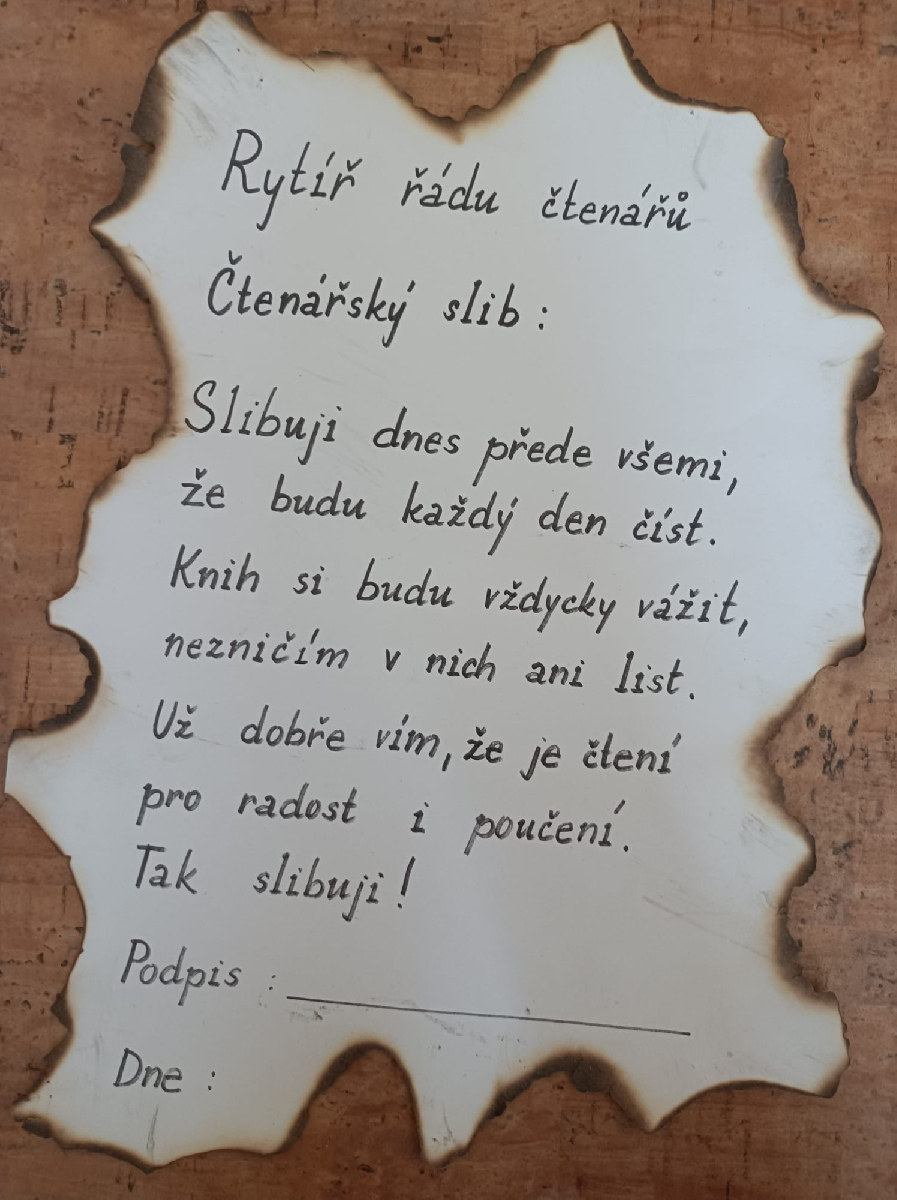 Rytíř řádu čtenářů
Čtenářský slib :
Slibuji dnes přede všemi,
že budu každý den číst.
Knih si budu vždycky vážit,
nezničím v nich ani list.
Už dobře vím, že je čtení
pro radost i poučení.
Tak slibuji!
Podpis :
Dne :